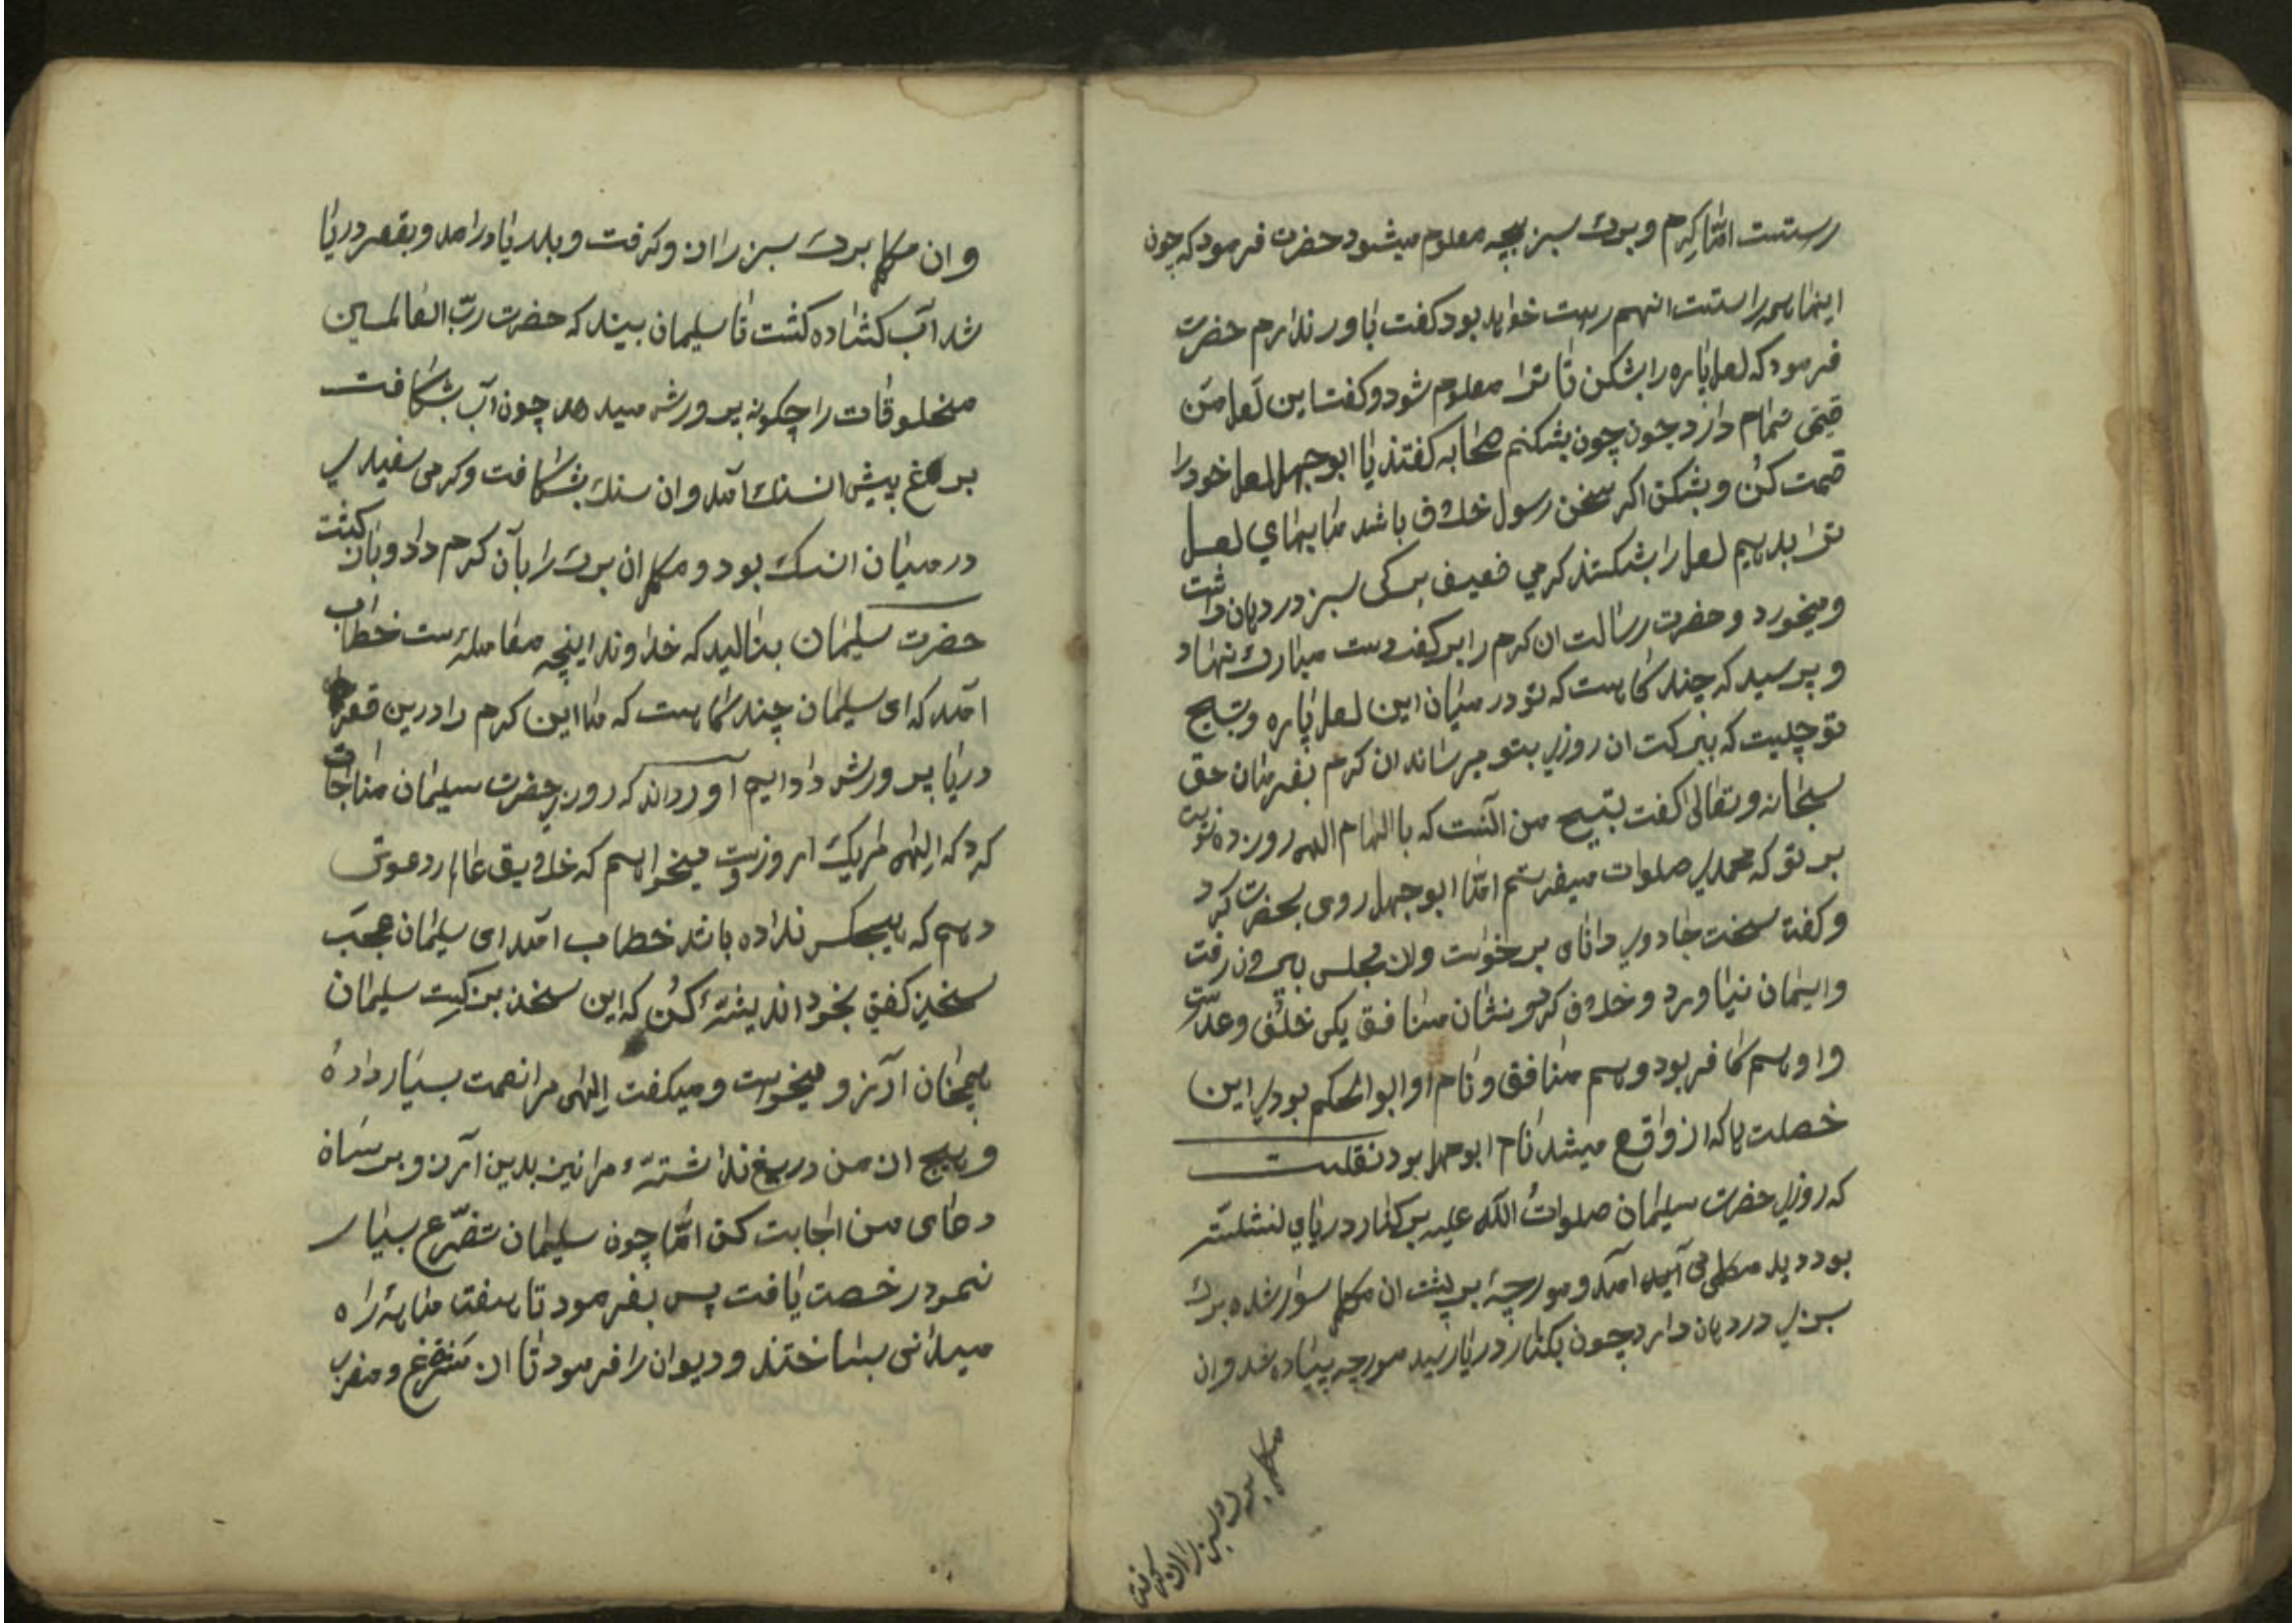 رستست امّا کرم و برک سبز بچه معلوم میشود حضرت فرمود که چون
اینها همه راستست انهم رست خواهد بود کفت باور ندارم حضرت
فرمود که لعل پاره را بشکن تا ترا معلوم شود و کفت این لعل من
قیمتی تمام دارد چون چون بشکنم صحابه کفتند یا ابوجهل لعل خود را
قیمت کن و بشکن اکر سخن رسول خلاف باشد ما بهای لعل
ترا بدهیم لعل را بشکستند کرمی ضعیف برکی سبز در دهان داشت
و میخورد و حضرت رسالت ان کرم را بر کف دست مبارک نهاد
و پرسید که چند کاهست که تو در میان این لعل پاره و تسبیح
تو چیست که ببرکت ان روزی بتو میرساند ان کرم بفرمان حق
سبحانه و تعالی کفت تسبیح من آنست که با الهام الله روز ده نوبت
بر تو که محمدی صلوات میفرستم امّا ابوجهل روی بحضرت کرد
و کفت سخت جادوی دانای برخواست و از مجلس بیرون رفت
و ایمان نیاورد و خلاف کرد و نشان منافق یکی خلف وعدست
و او هم کافر بود و هم منافق و نام او ابوالحکم بود از این
خصلت ها که از و واقع میشد نام ابوجهل بود نقلست
که روزی حضرت سلیمان صلوات الله علیه بر کنار دریای نشسته
بود دید مکلی می آید آمد و مورچهٔ بر پشت ان مکل سوار شده برک
سبزی در دهان دارد چون بکنار دریا رسید مورچه پیاده شد و ان
مکل برک سبز را از و کرفت
و ان مکل برک سبز را از و کرفت و بدریا درامد و بقعر دریا
شد آب کشاده کشت تا سلیمان بیند که حضرت ربّ العالمین
مخلوقات را چکونه پرورش میدهد چون آب بشکافت
پیش ان سنک آمد و ان سنک بشکافت و کرمی سفید
در میان ان سنک بود و مکل ان برک را بآن کرم داد و بازکشت
حضرت سلیمان بنالید که خداوندا اینچه معامله است خطاب
آمد که ای سلیمان چند سالست که ما این کرم را درین قعر
دریا پرورش داده ایم آورده اند که روزی حضرت سلیمان مناجات
کرد که الهی امروز میخواهم که خلایق عالم را دعوتی
دهم که هیچکس نداده باشد خطاب آمد ای سلیمان عجب
سخنی کفتی بخود اندیشهٔ کن که این سخن بزرکیست سلیمان
همچنان آرزو میخواست و میکفت الهی مرا نعمت بسیار دادهٔ
و هیچ از من دریغ نداشتهٔ مرا نیز بدین آرزو برسان
دعای من اجابت کن امّا چون سلیمان تضرّع بسیار
نمود رخصت یافت پس بفرمود تا هفت ماهه راه
میدانی بساختند و دیوان را فرمود تا از مشرق و مغرب